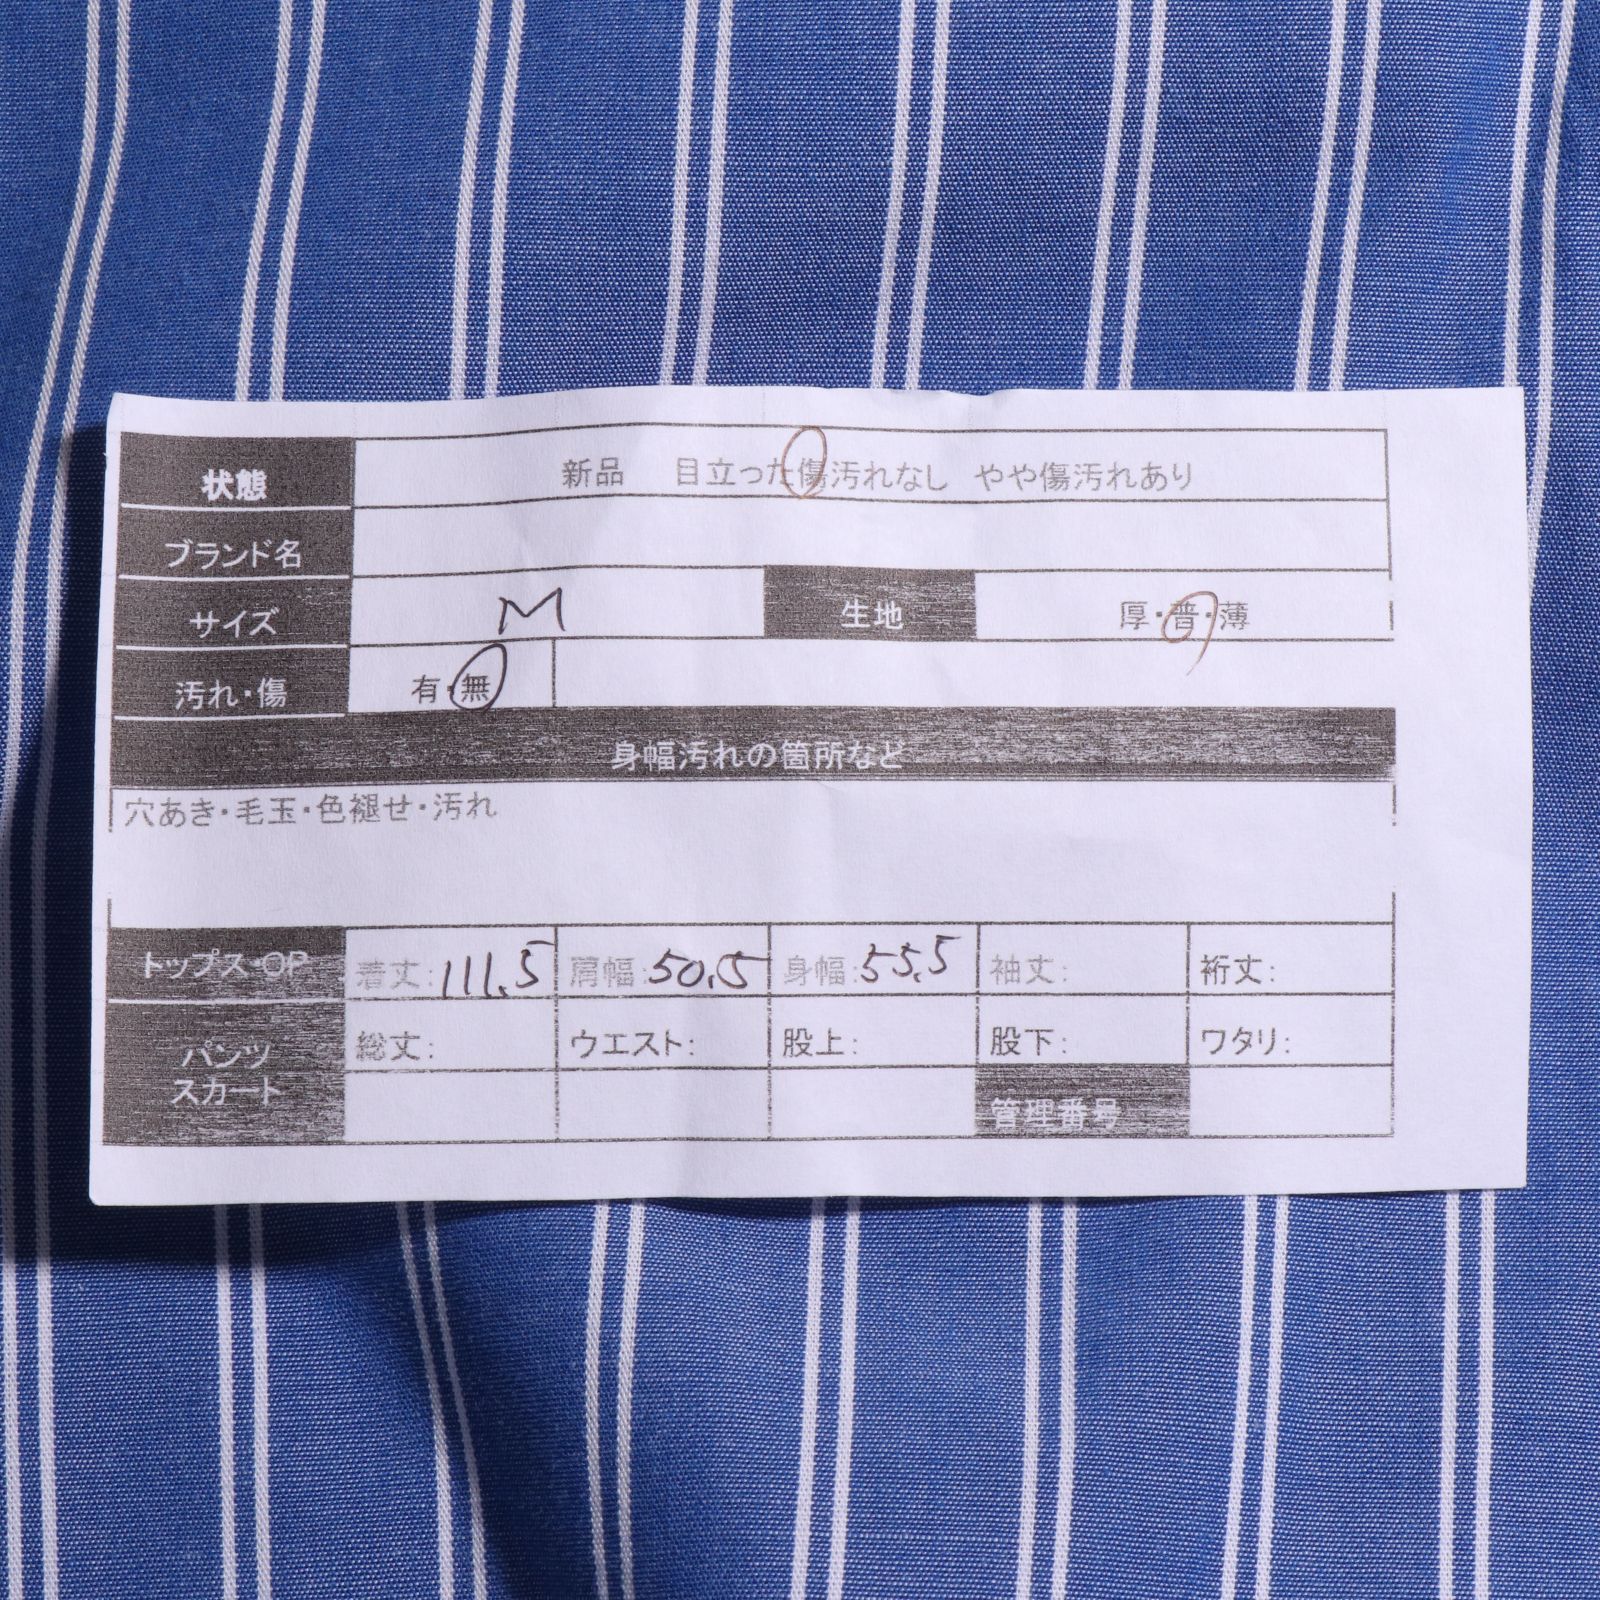 状態 新品 目立った傷汚れなし やや傷汚れあり
ブランド名
サイズ M 生地 厚・普・薄
汚れ・傷 有・無
身幅汚れの箇所など
穴あき・毛玉・色褪せ・汚れ
トップス・OP 着丈:111.5 肩幅:50.5 身幅:55.5 袖丈: 裄丈:
パンツ 総丈: ウエスト: 股上: 股下: ワタリ:
スカート 管理番号